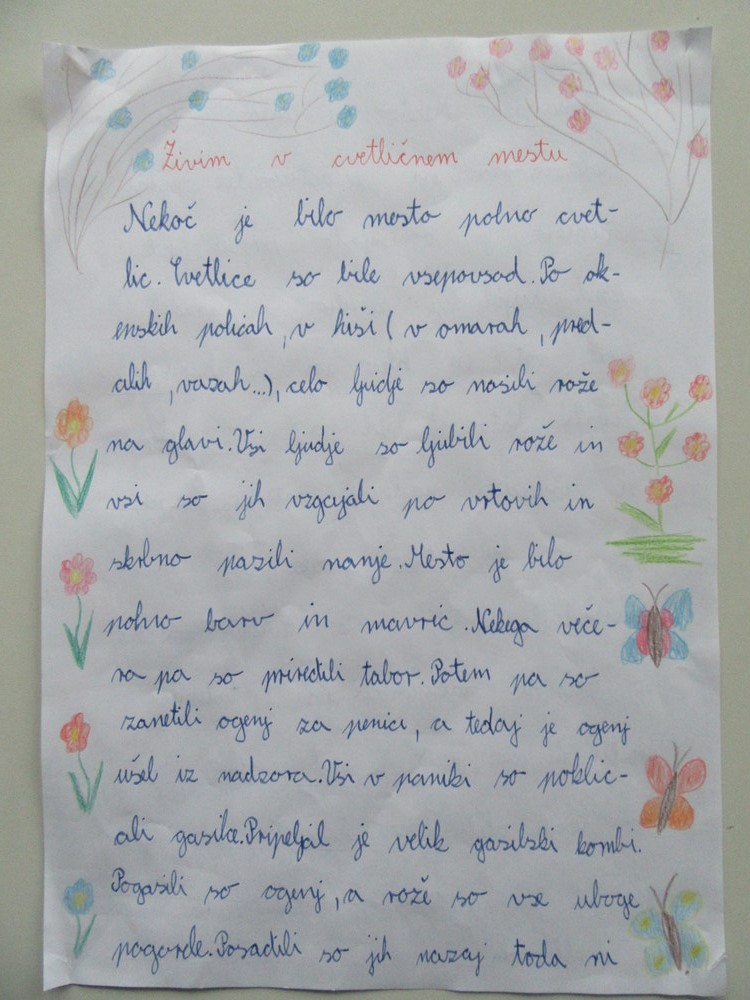 Živim v cvetličnem mestu
Nekoč je bilo mesto polno cvet-
lic. Cvetlice so bile vsepovsod. Po ok-
enskih policah, v hiši (v omarah, pred-
alih, vazah...), celo ljudje so nosili rože
na glavi. Vsi ljudje so ljubili rože in
vsi so jih vzgajali po vrtovih in
skrbno pazili nanje. Mesto je bilo
polno barv in mavric. Nekega veče-
ra pa so priredili tabor. Potem pa so
zanetili ogenj za penici, a tedaj je ogenj
ušel iz nadzora. Vsi v paniki so poklic-
ali gasilce. Pripeljal je velik gasilski kombi.
Pogasili so ogenj, a rože so vse uboge
pogorele. Posadili so jih nazaj toda ni